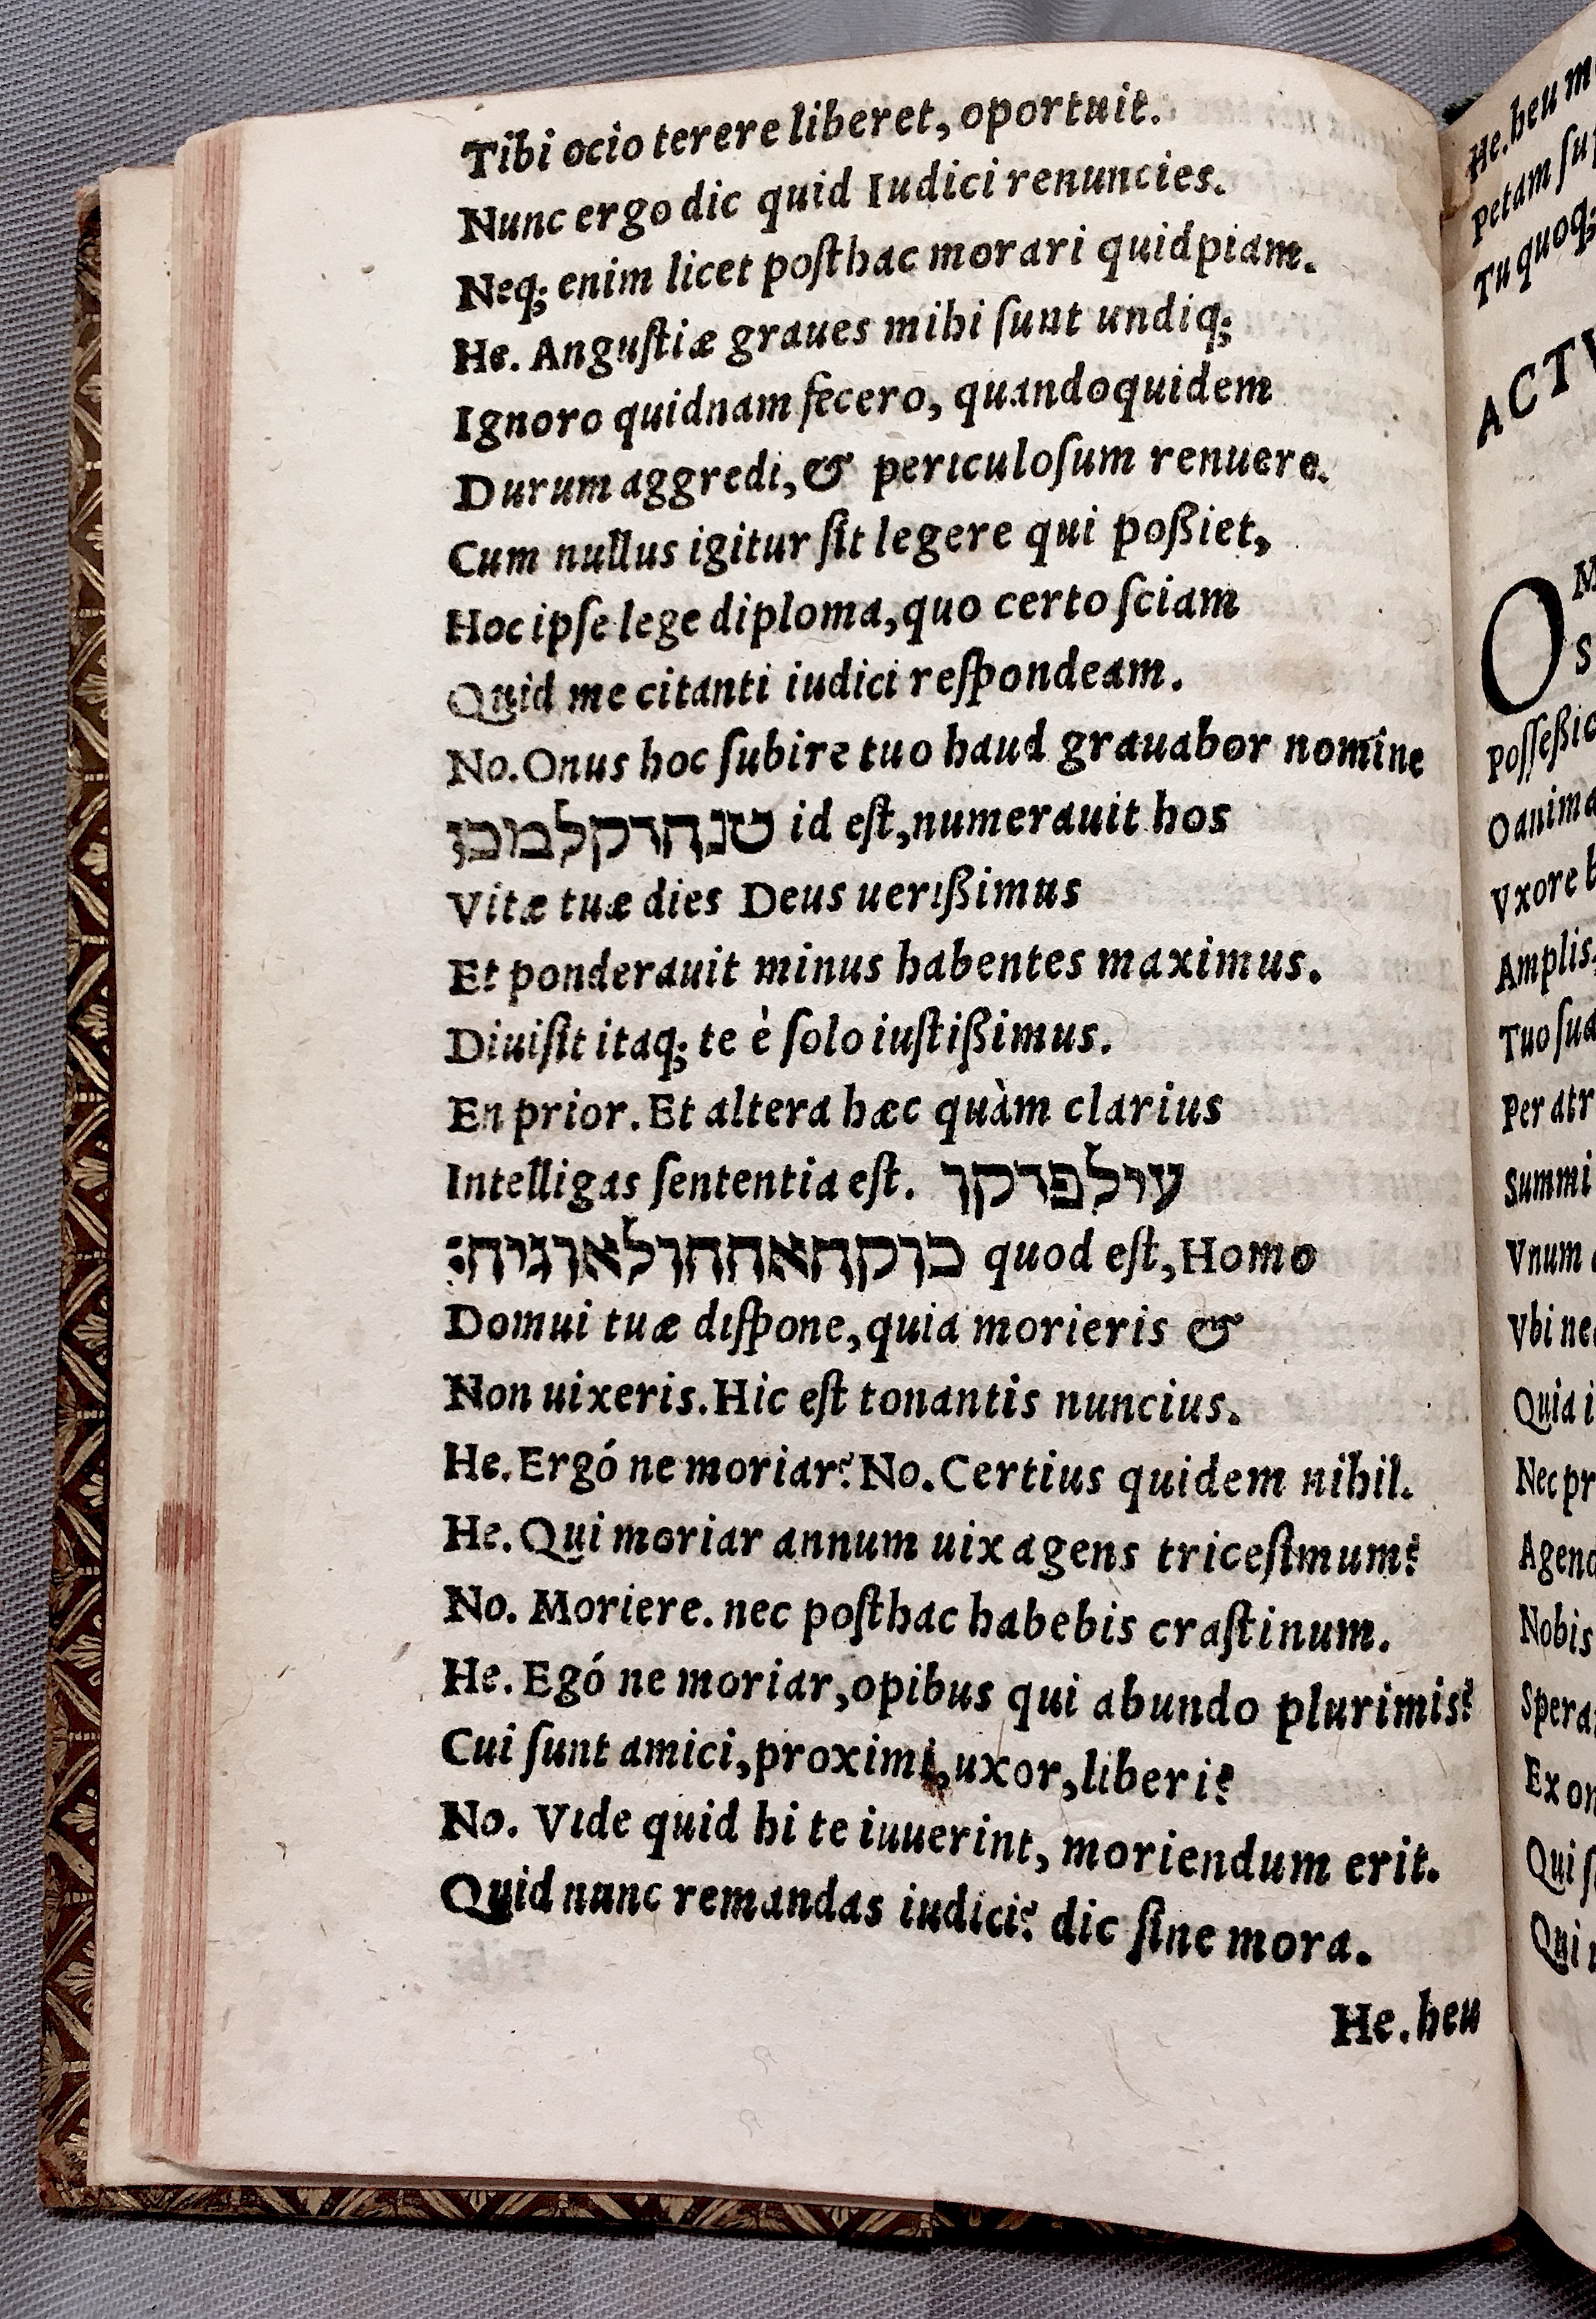 Tibi ocio terere liberet, oportuit.
Nunc ergo dic quid Iudici renuncies.
Neq; enim licet posthac morari quidpiam.
He. Angustiæ graues mihi sunt undiq;
Ignoro quidnam fecero, quandoquidem
Durum aggredi, & periculosum renuere.
Cum nullus igitur sit legere qui poßiet,
Hoc ipse lege diploma, quo certo sciam
Quid me citanti iudici respondeam.
No. Onus hoc subire tuo haud grauabor nomine
id est, numerauit hos
Vitæ tuæ dies Deus uerißimus
Et ponderauit minus habentes maximus.
Diuisit itaq; te è solo iustißimus.
En prior. Et altera hæc quàm clarius
Intelligas sententia est.
quod est, Homo
Domui tuæ dispone, quia morieris &
Non uixeris. Hic est tonantis nuncius.
He. Ergó ne moriar? No. Certius quidem nihil.
He. Qui moriar annum uix agens tricesimum?
No. Moriere. nec posthac habebis crastinum.
He. Egó ne moriar, opibus qui abundo plurimis?
Cui sunt amici, proximi, uxor, liberi?
No. Vide quid hi te iuuerint, moriendum erit.
Quid nunc remandas iudici? dic sine mora.
He. heu
He. heu
Petam
Tu quoq;
O
Possessio
O anima
Vxore
Amplis
Tuo
Per atr
Summi
Vnum
Vbi
Quia
Nec pr
Agend
Nobis
Spera
Ex
Qui
Qui